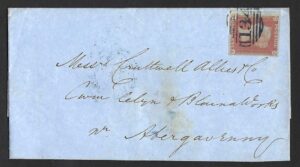 134
Messrs Cruttwell Allies & Co
Cwm Celyn & Blaina Works
Nr Abergavenny